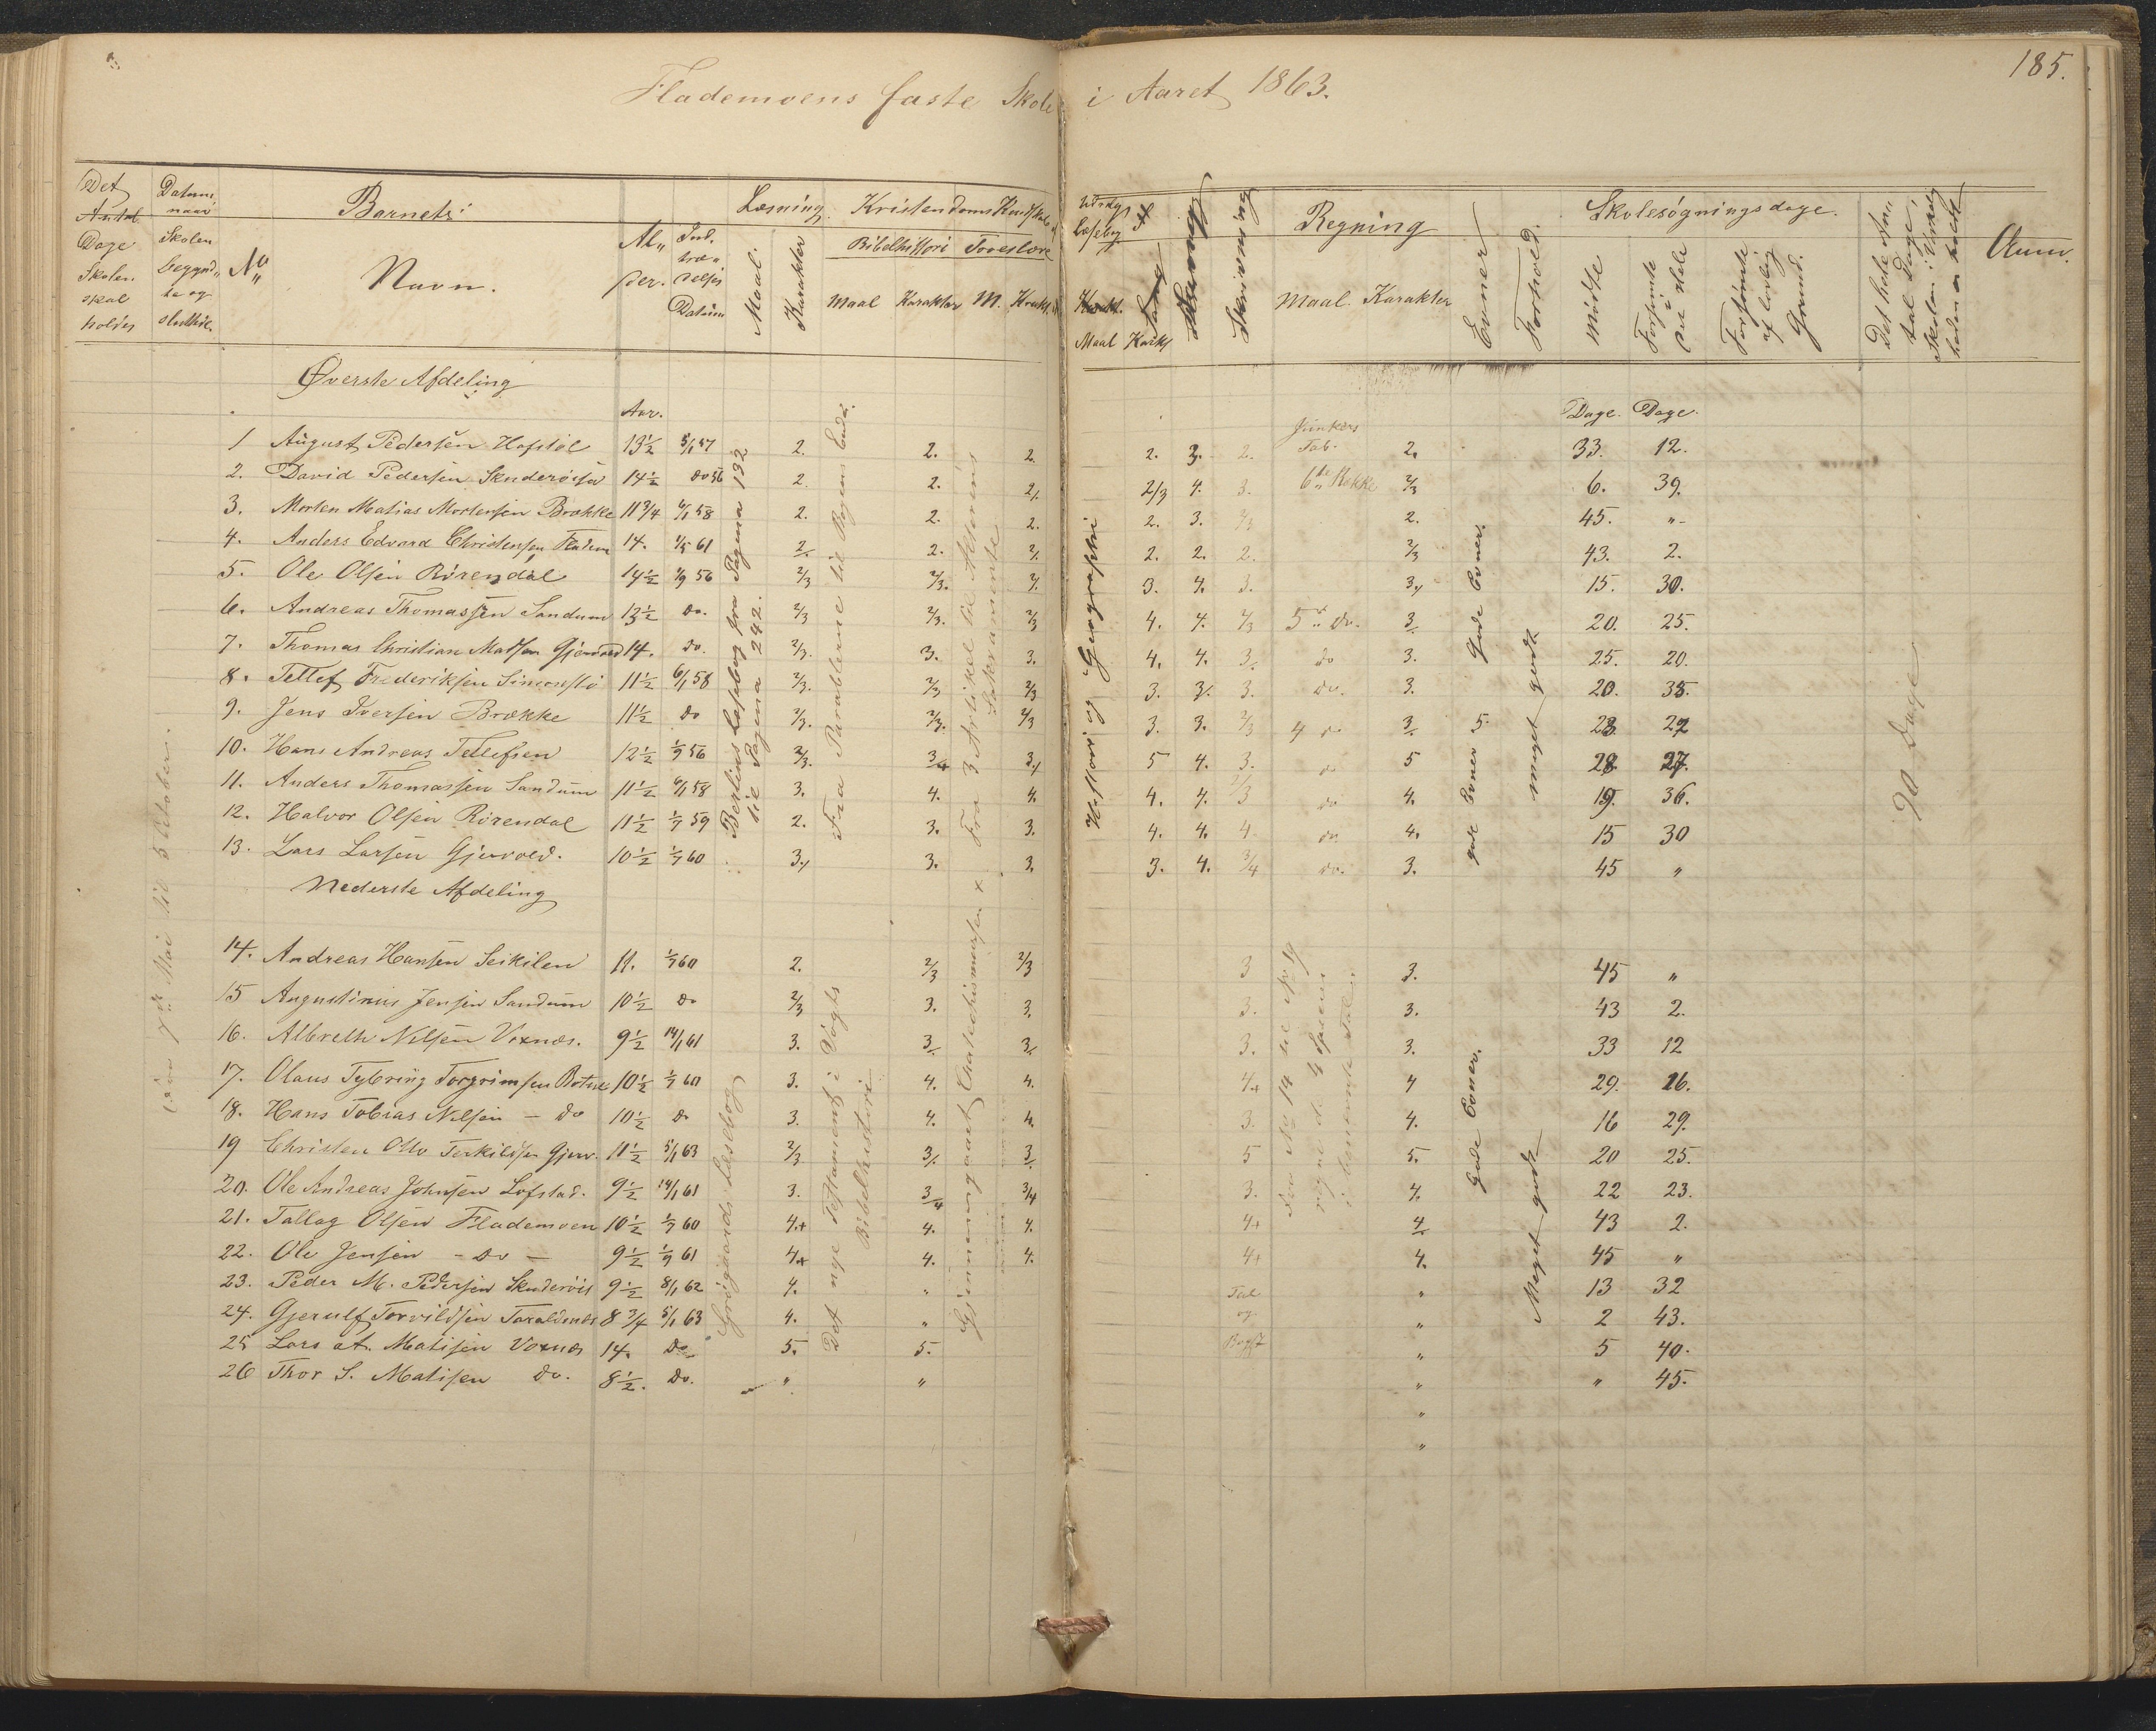 185.
Flademoens faste Skole i Aaret 1863.
Det Antal Dage Skolen skal holdes
Datum naar Skolen begynd„ te og sluttede
No
Barnets:
Navn.
Al„ der.
Ind„ træ„ delses Datum
Læsning
Maal.
Karakter
Kristendoms Kundskab
Bibelhistori
Troeslære
Maal
Karakter
M.
Karakt.
Udvalg Læsebog
Maal
Karkt
Sang
Skrivning
Regning
Maal.
Karakter
Evner
Forhold.
Skolesøgningsdage.
Mødte
Forsømte i det Hele
Forsømte af lovlig Grund.
Det hele An„ tal Dage, Skolen i Virkelig heden er holdt
Anm.
Øverste Afdeling
Aar.
Dage. Dage.
1 August Pedersen Hafstöl 13½ 5/1 57 2. 2. 2. 2. 3. 2. Junkers Tab. 2. 33. 12.
2. David Pedersen Skuderöisen 14½ do 56 2. 2. 2/. 2/3 4. 3. 6te Rekke 2/3 6. 39.
3. Morten Matias Mortensen Brække 11¾ 6/1 58 2. 2. 2. 2. 3. 2/3 2. 45. „
4. Anders Edvard Christensen Fladem 14. 1/5 61 2/. 2. 2/. 2. 2. 2. 2/3 43. 2.
5. Ole Olsen Rörendal 14½ 1/9 56 2/3 2/3. 2/. 3. 4. 3. 3/. 15. 30.
6. Andreas Thomassen Sandum 13½ do. 2/3 2/3. 2/3 4. 4. 2/3 5te do. 3/. 20. 25.
7. Thomas Christian Madsen Gjervold 14. do. 2/3. 3. 3. 4. 4. 3/. do 3. 25. 20.
8. Tellef Frederiksen Simonstö 11½ 6/1 58 2/3. 2/3 2/3 3. 3/. 3. do. 3. 20. 35.
9. Jens Iversen Brække 11½ do 2/3. 2/3. 2/3 3. 3. 2/3 4 do 3/. 23. 22
10. Hans Andreas Tellefsen 12½ 1/9 56 2/3. 3/4 3/. 5 4. 3. do 5 28. 27.
11. Anders Thomassen Sandum 11½ 6/1 58 3. 4. 4. 4. 4. 2/3 do 4. 19. 36.
12. Halvor Olsen Rörendal 11½ 1/7 59 2. 3. 3. 4. 4. 4. do 4. 15 30
13. Lars Larsen Gjervold. 10½ 1/7 60 3/. 3. 3. 3. 4. 3/4 do. 3. 45 „
Nederste Afdeling
14. Andreas Hansen Seikilen 11. 1/7 60 2. 2/3 2/3 3 3. 45 „
15 Augustinius Jensen Sandum 10½ do 2/3 3. 3. 3. 3. 43 2.
16. Albreth Nilsen Voxnæs. 9½ 14/1 61 3. 3/. 3/. 3. 3. 33 12
17. Olaus Tybring Torgrimsen 10½ 1/7 60 3. 4. 4. 4+ 4 29. 16.
18. Hans Tobias Nilsen – do 10½ do 3. 4. 4. 3. 4. 16 29.
19 Christen Otto Terkildsen Gjerv. 11½ 5/1 63 2/3 3/. 3/. 5 5. 20 25.
20. Ole Andreas Johnsen Löfstad. 9½ 14/1 61 3. 3/4 3/4 3. 4. 22 23.
21. Tallag Olsen Flademoen 10½ 1/7 60 4.+ 4. 4. 4+ 4/. 43 2.
22. Ole Jensen – do – 9½ 1/9 61 4.+ 4. 4. 4+ 4. 45 „
23. Peder M. Pedersen Skuderöis 9½ 8/1 62 4. „ Tal „ 13 32
24. Gjerulf Torvildsen Taraldsnes 8¾ 5/1 63 4. „ og „ 2 43.
25 Lars at. Matisen Voxnæs 14. do 5. 5. Bogst „ 5 40.
26 Thor S. Matisen do. 8½. do. „ „ „ „ 45.
„
„
Fra 7de Mai til 5 Oktober.
Bertius Læsebog fra Pagina 132
til Pagina 242.
Fra Parablerne til Bogens Ende.
Fra 3 Artikel til Alterens
Sakramente
Historie og Geografhi
Gode Evner.
gode Evner 5.
meget godt
90 Dage
Grögaards Læsebog
Det nye Testament i Vogts
Bibelhistori
Gjennemgaaet Chatechismusen x
Fra No 14 til No 19
regne de 4 Species
i benævnte Tal.
Gode Evner.
Meget godt